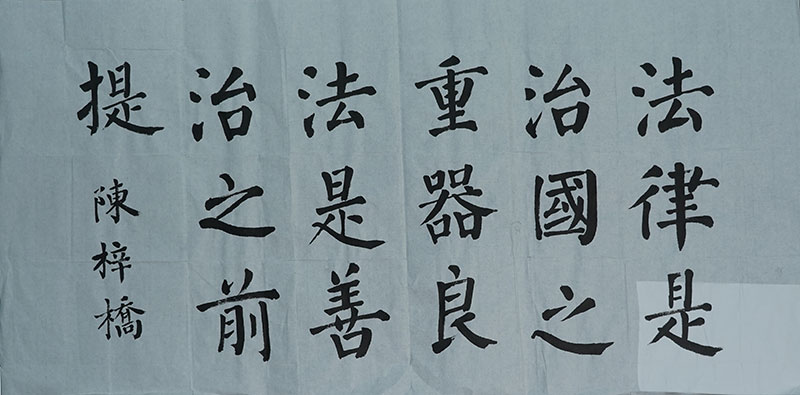 法律是
治國之
重器良
法是善
治之前
提
陳梓橋